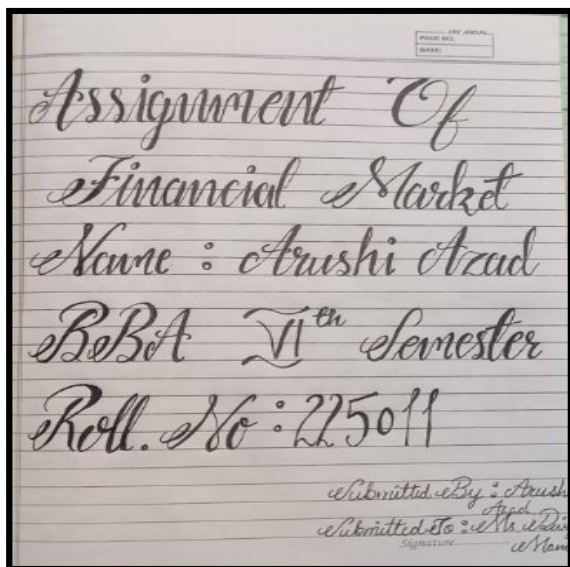 PAGE NO.
DATE:
Assignment Of
Financial Market
Name : Arushi Azad
BBA VIth Semester
Roll. No : 225011
Submitted By : Arush
Azad
Submitted To : Ms
Mam
Signature